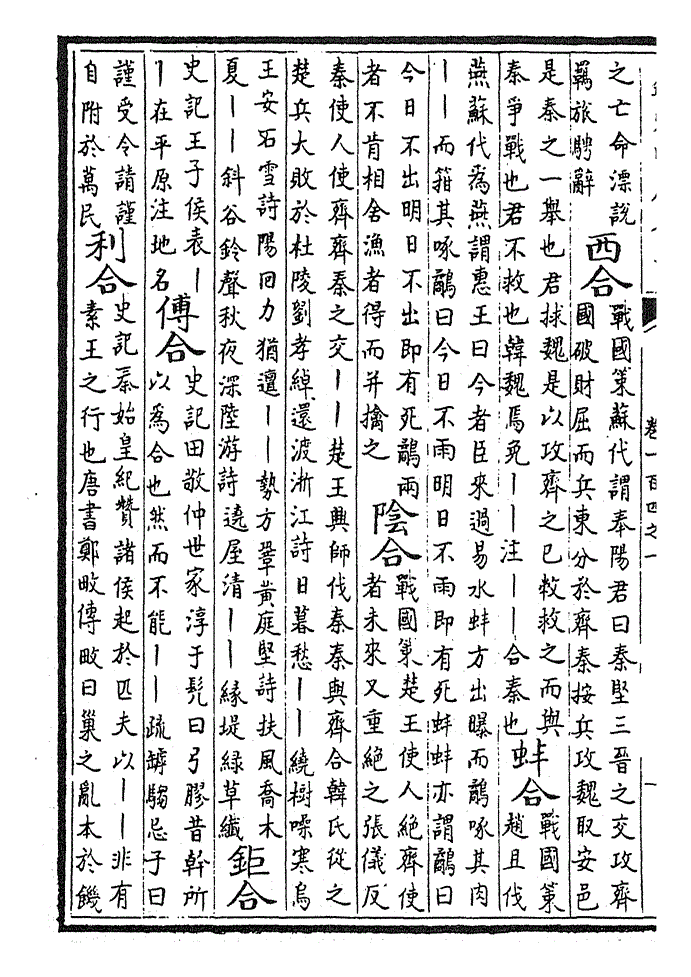 之亡命漂説
羈旅騁辭
西合
戰國策蘇代謂奉陽君曰秦堅三晉之交攻齊
國破財屈而兵東分於齊秦按兵攻魏取安邑
是秦之一舉也君捄魏是以攻齊之已救救之而與
秦爭戰也君不救也韓魏焉免丨丨注丨丨合秦也
蚌合
戰國策
趙且伐
燕蘇代為燕謂惠王曰今者臣來過易水蚌方出曝而鷸啄其肉
丨丨而箝其啄鷸曰今日不雨明日不雨即有死蚌蚌亦謂鷸曰
今日不出明日不出即有死鷸兩
者不肯相舍漁者得而并擒之
陰合
戰國策楚王使人絶齊使
者未來又重絶之張儀反
秦使人使齊齊秦之交丨丨楚王興師伐秦秦與齊合韓氏從之
楚兵大敗於杜陵劉孝綽還渡浙江詩日暮愁丨丨繞樹噪寒烏
王安石雪詩陽回力猶邅丨丨勢方鞏黄庭堅詩扶風喬木
夏丨丨斜谷鈴聲秋夜深陸游詩遶屋清丨丨緣堤緑草纖
鉅合
史記王子侯表丨
丨在平原注地名
傅合
史記田敬仲世家淳于髡曰弓膠昔幹所
以為合也然而不能丨丨疏罅騶忌子曰
謹受令請謹
自附於萬民
利合
史記秦始皇紀贊諸侯起於匹夫以丨丨非有
素王之行也唐書鄭畋傳畋曰巢之亂本於饑
卷一百四之一